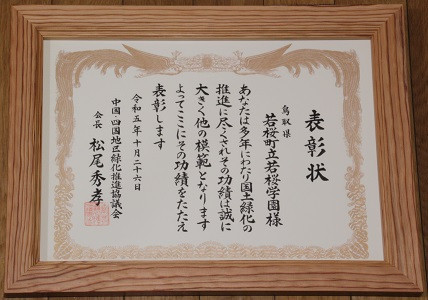 表彰状
鳥取県
若桜町立若桜学園様
あなたは多年にわたり国土緑化の
推進に尽くされその功績は誠に
大きく他の模範となります
よってここにその功績をたたえ
表彰します
令和五年十月二十六日
中国・四国地区緑化推進協議会
会長 松尾秀孝